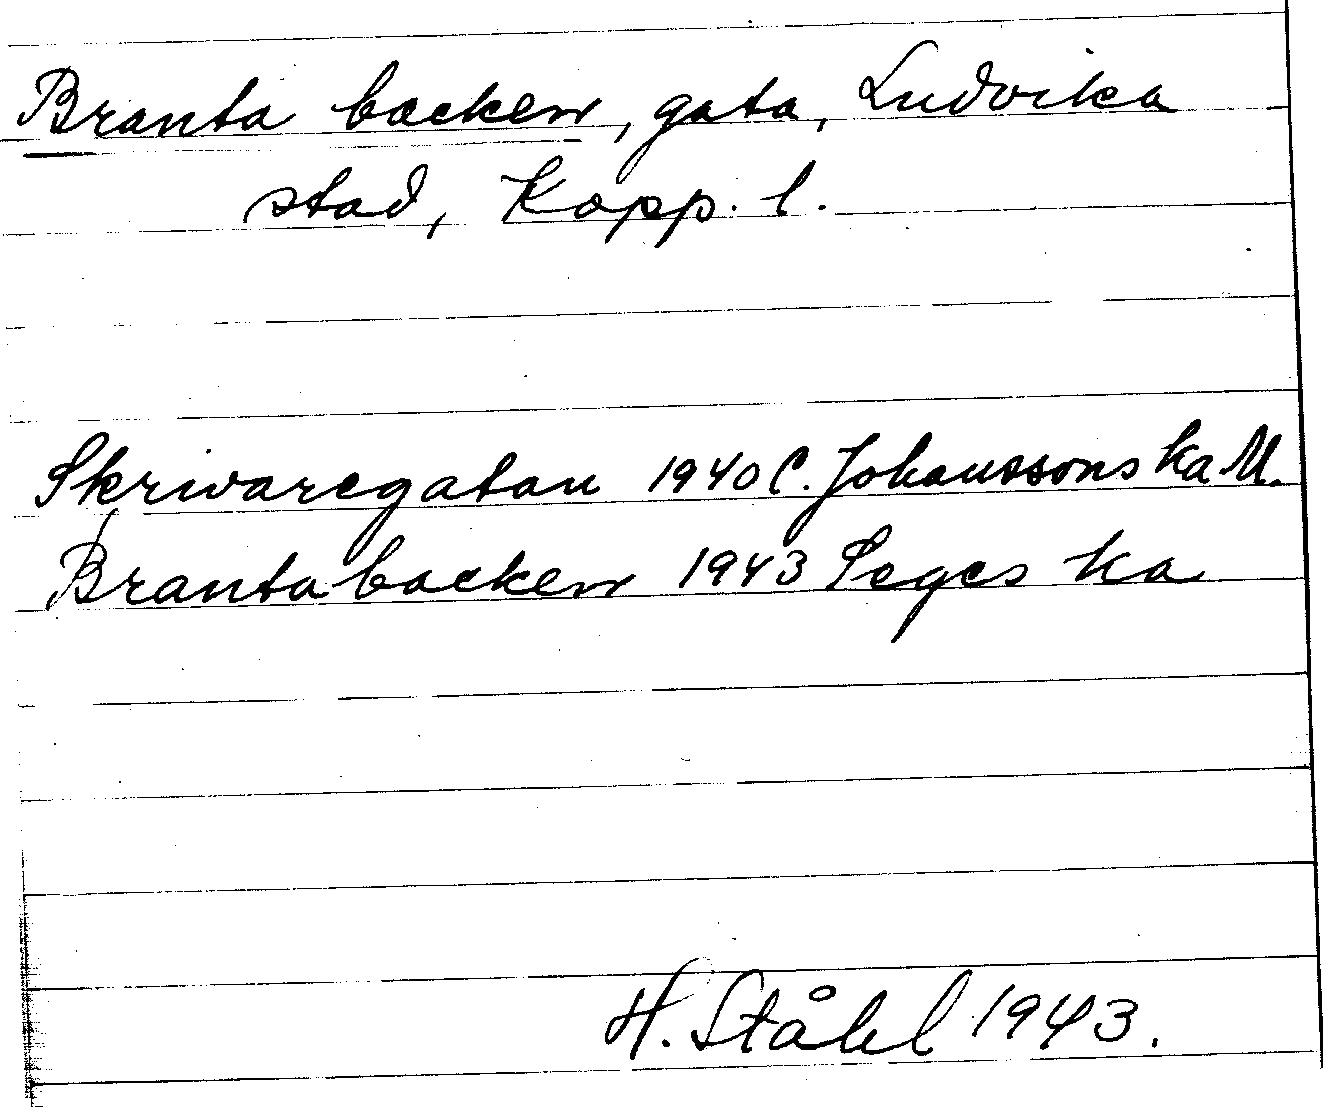 Branta backen, gata, Ludvika
stad, Kopp. l.
Skrivaregatan 1940 C. Johanssons ka M.
Branta backen 1943 Seges ka
H. Ståhl 1943.